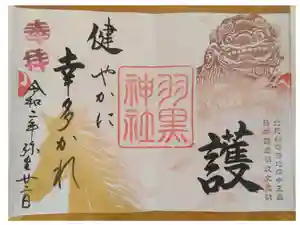 護
羽黒
神社
健やかに
幸多かれ
奉拝
令和二年弥生廿二日